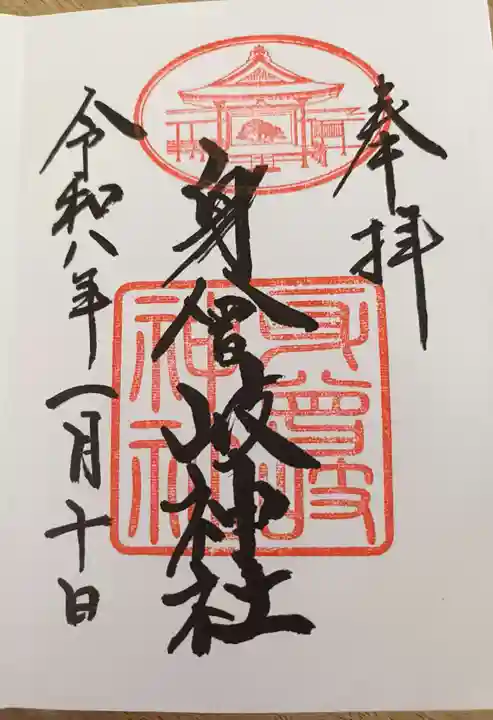 奉拝
身曾岐神社
身曾岐神社
令和八年一月十日